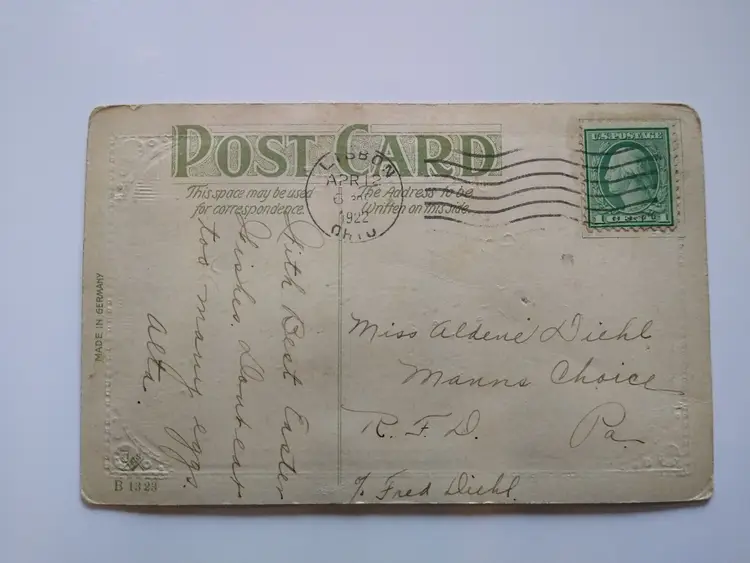 POST CARD
This space may be used
for correspondence.
The Address to be
Written on this side.
LISBON
APR 12
1922
OHIO
U.S. POSTAGE
1 CENT 1
With Best Easter
Wishes. Dont eat
too many eggs.
Alta.
Miss Aldene Diehl
Manns Choice
R. F. D. Pa
c/o Fred Diehl.
MADE IN GERMANY
B 1323